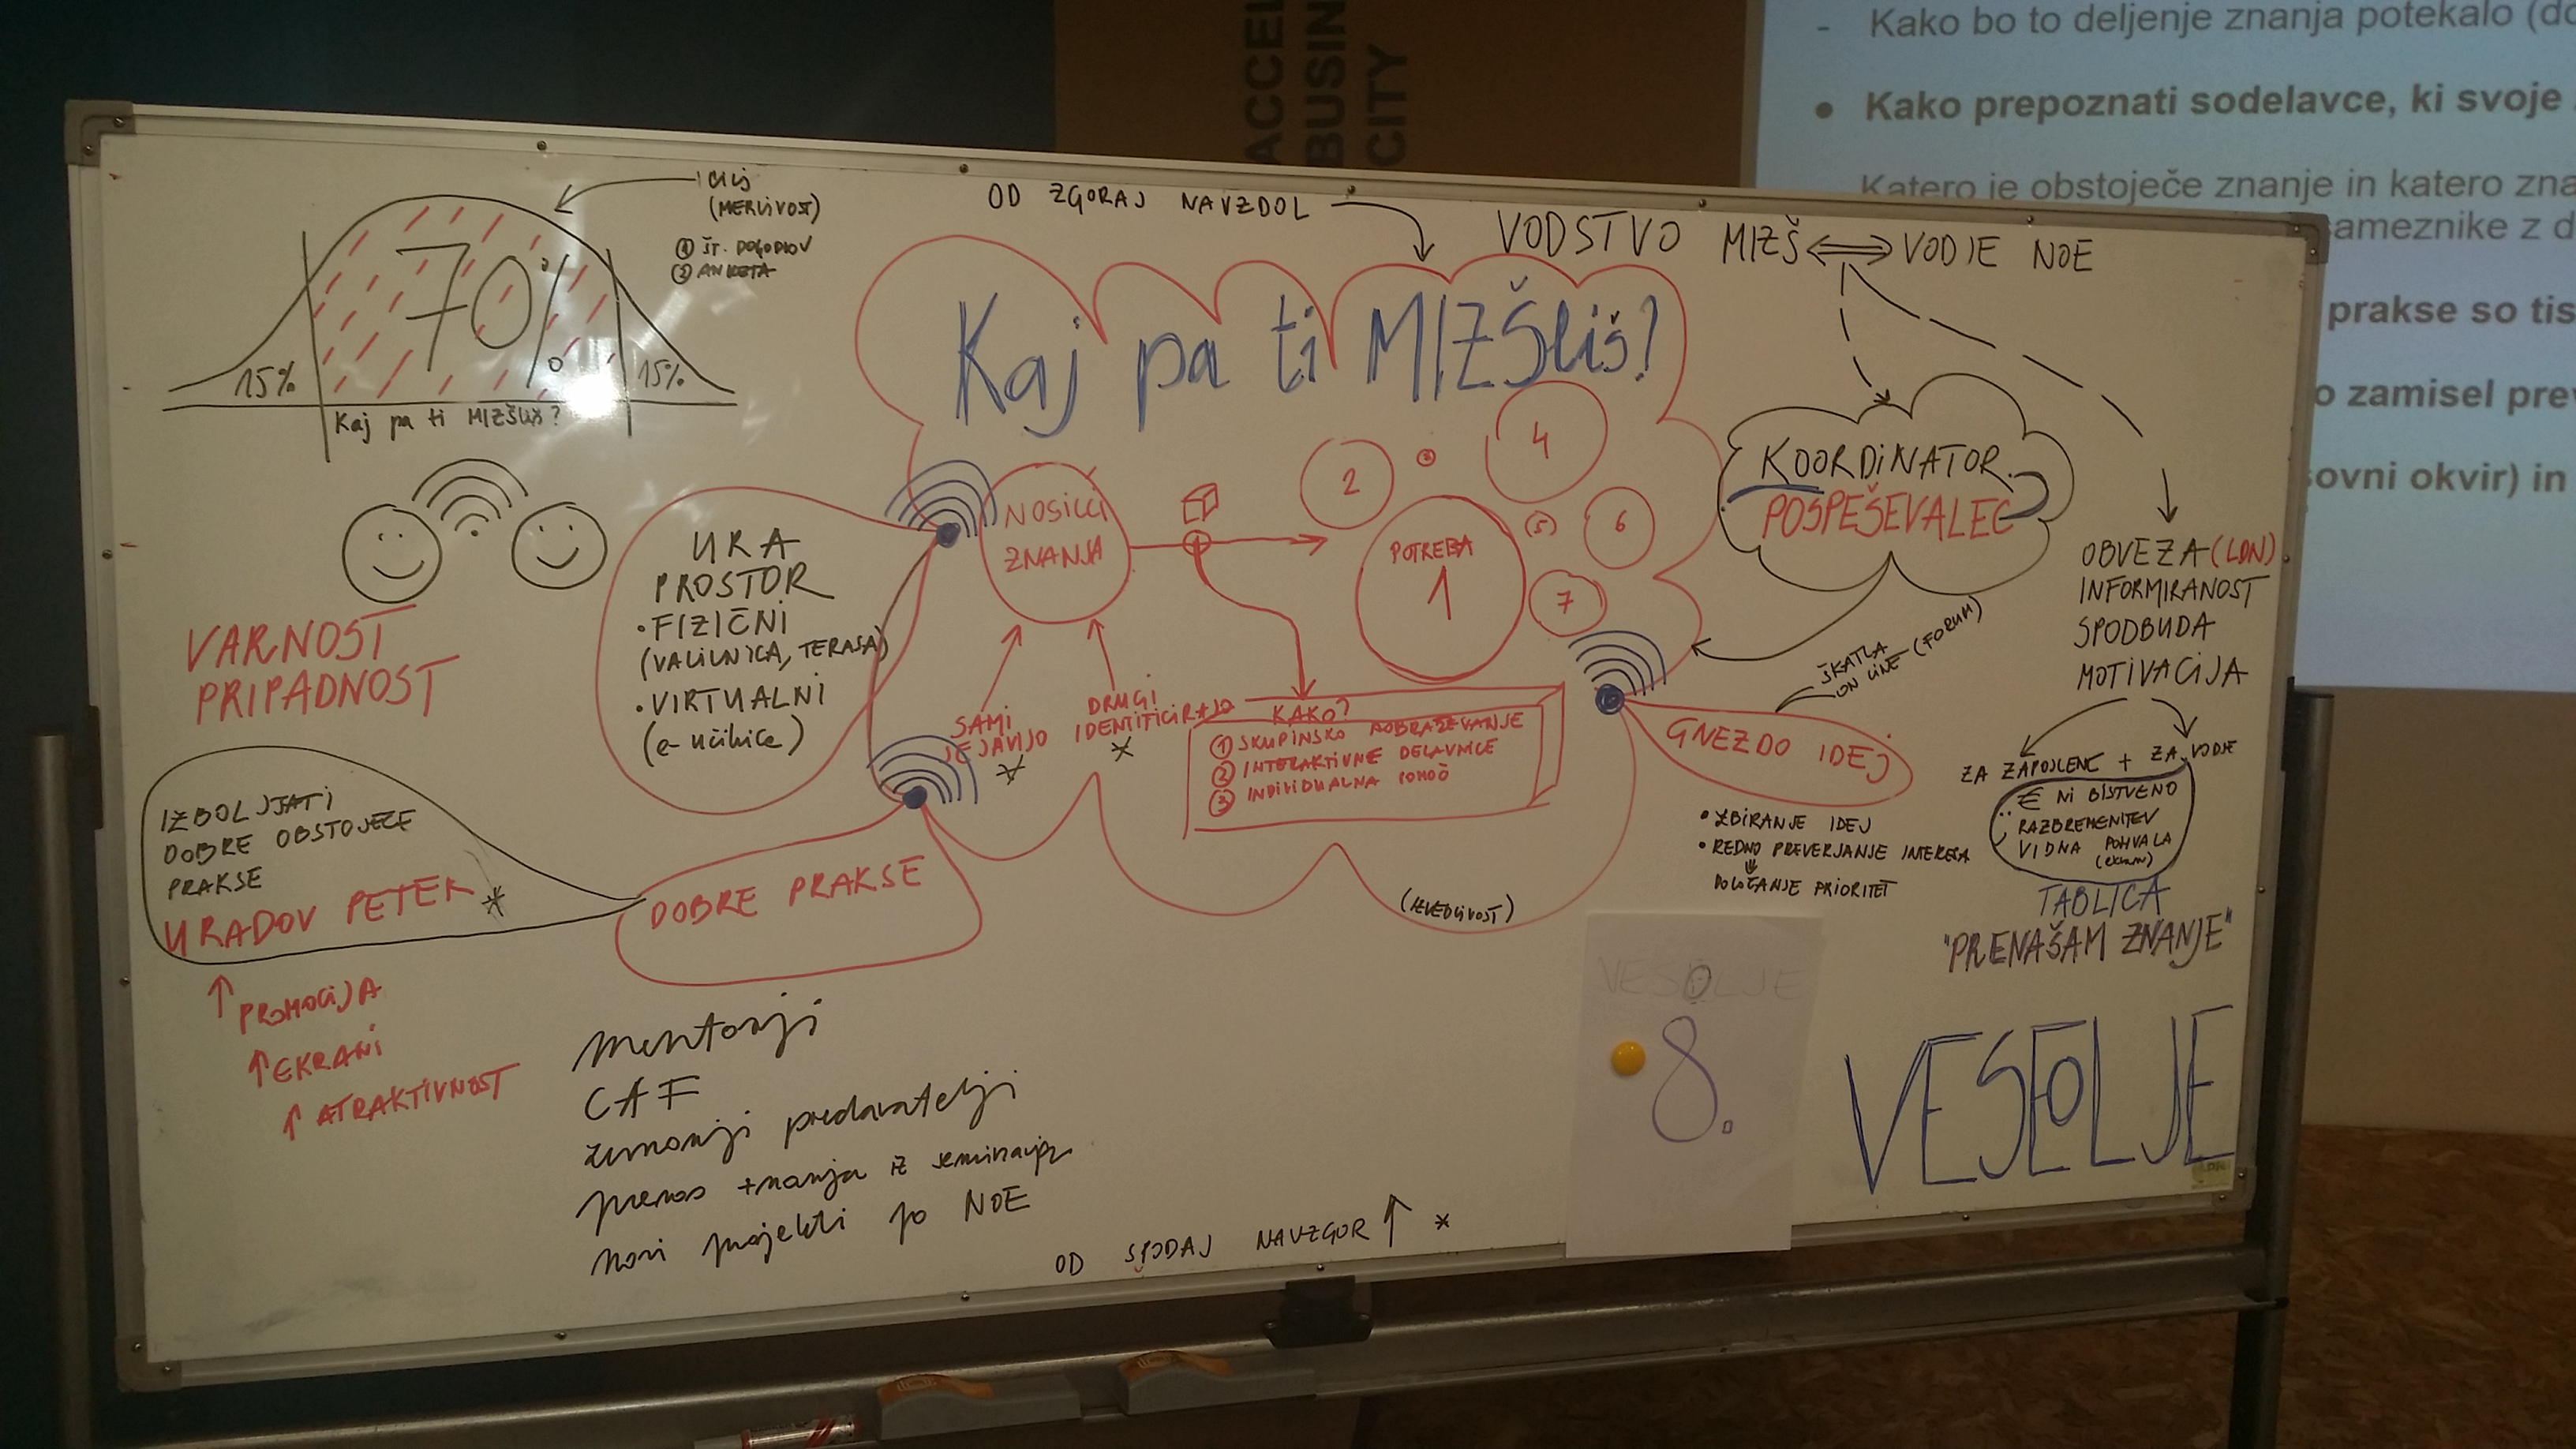 ACCEL
BUSIN
CITY
- Kako bo to deljenje znanja potekalo (do
• Kako prepoznati sodelavce, ki svoje
Katero je obstoječe znanje in katero zna
sameznike z d
prakse so tis
o zamisel prev
sovni okvir) in
CILJ
(MERLJIVOST)
① ŠT. DOGODKOV
② ANKETA
70%
15%
15%
Kaj pa ti MIZŠliš?
OD ZGORAJ NAVZDOL
VODSTVO MIZŠ ⟺ VODJE NOE
Kaj pa ti MIZŠliš?
VARNOST
PRIPADNOST
URA
PROSTOR
• FIZIČNI
(VALILNICA, TERASA)
• VIRTUALNI
(e-učilnice)
NOSILCI
ZNANJA
2
3
4
(5)
6
7
POTREBA
1
KOORDINATOR
POSPEŠEVALEC
OBVEZA (LDN)
INFORMIRANOST
SPODBUDA
MOTIVACIJA
SAMI
SE JAVIJO
*
DRUGI
IDENTIFICIRAJO
*
KAKO?
① SKUPINSKO IZOBRAŽEVANJE
② INTERAKTIVNE DELAVNICE
③ INDIVIDUALNA POMOČ
ŠKATLA
ON LINE (FORUM)
GNEZDO IDEJ
• ZBIRANJE IDEJ
• REDNO PREVERJANJE INTERESA
DOLOČANJE PRIORITET
ZA ZAPOSLENE + ZA VODJE
€ NI BISTVENO
RAZBREMENITEV
VIDNA POHVALA
(ekrani)
TABLICA
"PRENAŠAM ZNANJE"
IZBOLJŠATI
DOBRE OBSTOJEČE
PRAKSE
URADOV PETEK *
↑ PROMOCIJA
↑ EKRANI
↑ ATRAKTIVNOST
DOBRE PRAKSE
(IZVEDLJIVOST)
mentorji
CAF
zunanji predavatelji
prenos znanja iz seminarjev
novi projekti po NOE
OD SPODAJ NAVZGOR ↑ *
VESOLJE
8.
VESOLJE